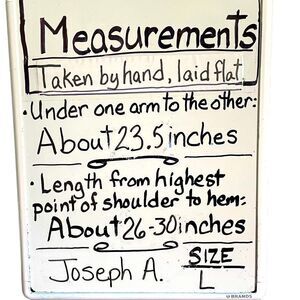 Measurements
Taken by hand, laid flat.
• Under one arm to the other:
About 23.5 inches
• Length from highest
point of shoulder to hem:
About 26-30 inches
Joseph A.
SIZE
L
U BRANDS